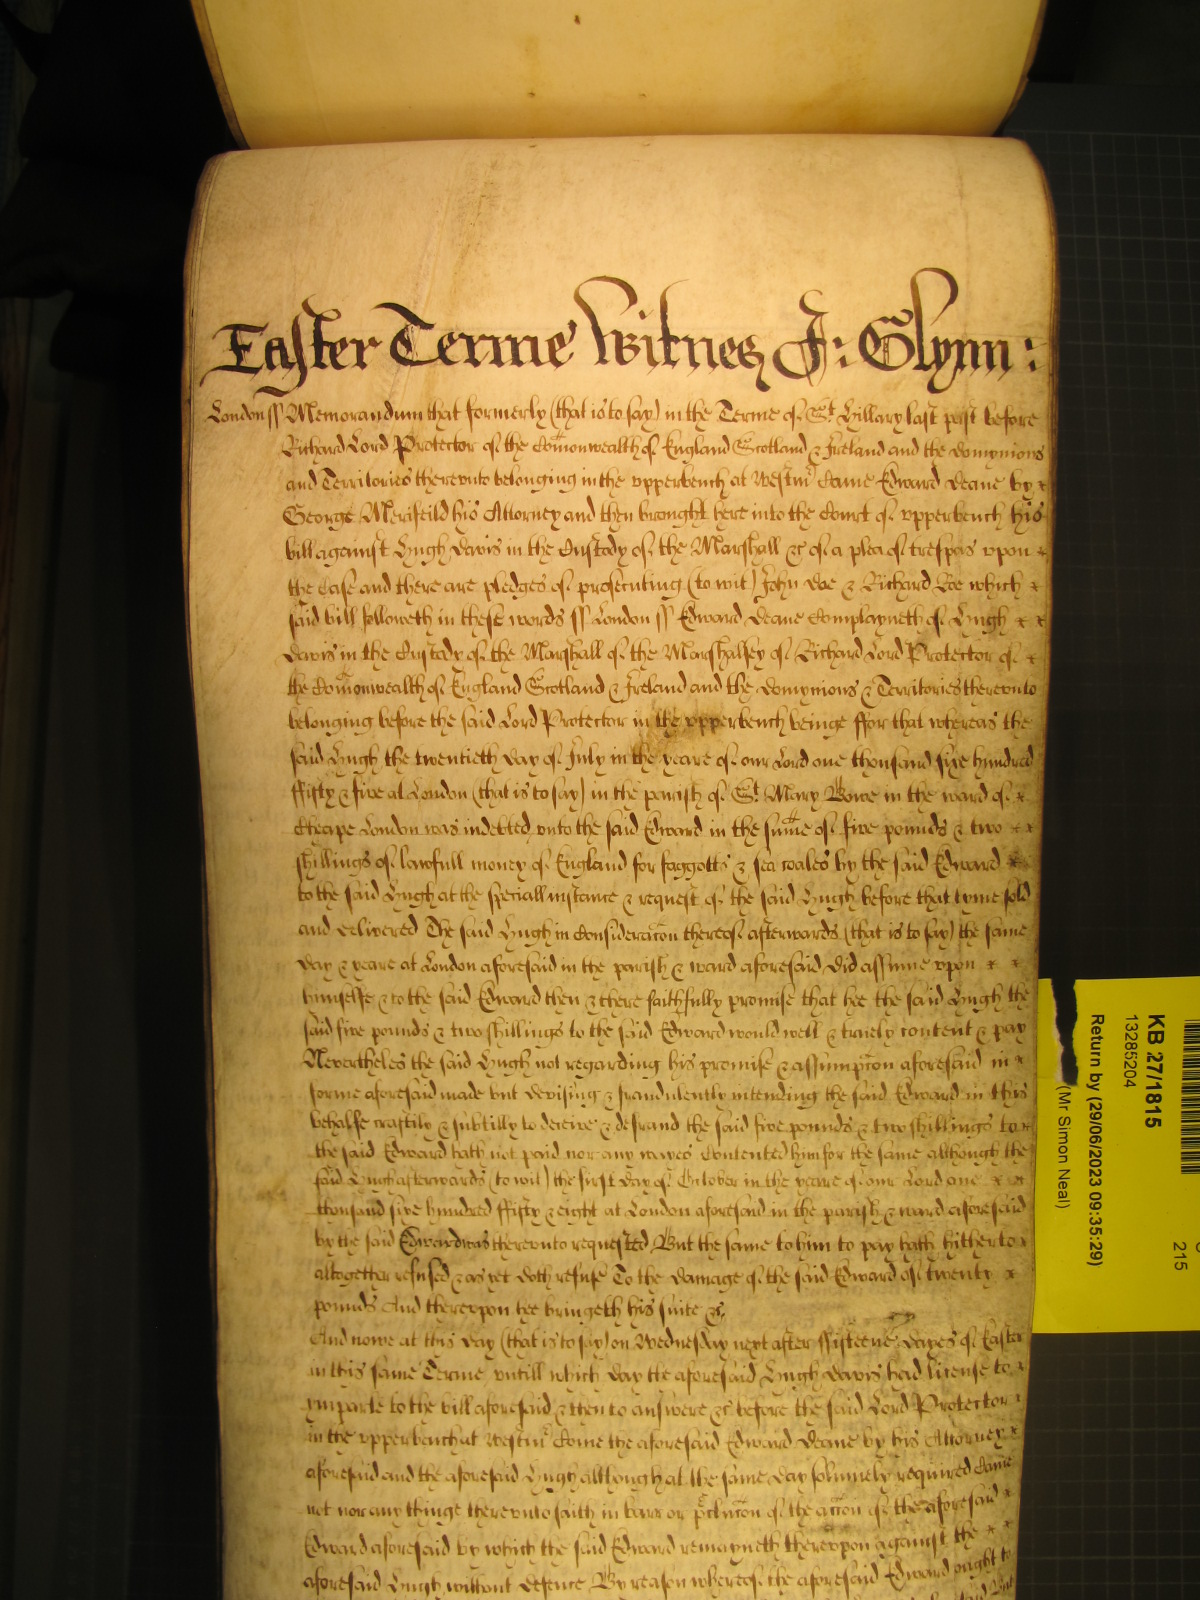 Easter Terme Witnes J: Glynn:
London ss Memorandum that formerly (that is to say) in the Terme of St. Hillary last past before
Richard Lord Protector of the Comonwealth of England Scotland & Ireland and the dominions
and Territories thereunto belonging in the upperbench at Westmr Came Edward Deane by
George Merifeild his Attorney and then brought here into the Court of upperbench his
bill against Hugh Davis in the Custody of the Marshall &c of a plea of trespas upon
the Case and there are pledges of prosecuting (to wit) John Doe & Richard Roe which
said bill followeth in these words ss London ss Edward Deane Complayneth of Hugh
Davis in the Custody of the Marshall of the Marshalsey of Richard Lord Protector of
the Comonwealth of England Scotland & Ireland and the dominions & Territories thereunto
belonging before the said Lord Protector in the upperbench beinge ffor that whereas the
said Hugh the twentieth day of July in the yeare of our Lord one thousand sixe hundred
ffifty & five at London (that is to say) in the parish of St. Mary Bowe in the ward of
Cheape London was indebted unto the said Edward in the sume of five pounds & two
shillings of lawfull money of England for faggotts & sea coales by the said Edward
to the said Hugh at the speciall instance & request of the said Hugh before that tyme sold
and delivered The said Hugh in Consideracon thereof afterwards (that is to say) the same
day & yeare at London aforesaid in the parish & ward aforesaid did assume upon
himselfe & to the said Edward then & there faithfully promise that hee the said Hugh the
said five pounds & two shillings to the said Edward would well & truely content & pay
Nevertheles the said Hugh not regarding his promise & assumpcon aforesaid in
forme aforesaid made but devising & fraudulently intending the said Edward in this
behalfe craftily & subtilly to deceive & defraud the said five pounds & two shillings to
the said Edward hath not paid nor any wayes Contented him for the same although the
said Hugh afterwards (to wit) the first day of October in the yeare of our Lord one
thousand sixe hundred ffifty & eight at London aforesaid in the parish & ward aforesaid
by the said Edward was thereunto requested But the same to him to pay hath hitherto
altogether refused & as yet doth refuse To the damage of the said Edward of twenty
pounds And thereupon hee bringeth his suite &c.
And nowe at this day (that is to say) on Wednesday next after ffifteene dayes of Easter
in this same Terme untill which day the aforesaid Hugh Davis had license to
imparle to the bill aforesaid & then to answere &c before the said Lord Protector
in the upperbench at Westmr Come the aforesaid Edward Deane by his Attorney
aforesaid and the aforesaid Hugh although at the same day solemnely required Came
not nor any thinge thereunto saith in barr or pclucon of the accon of the aforesaid
Edward aforesaid by which the said Edward remayneth thereupon against the
aforesaid Hugh without defence By reason whereof the aforesaid Edward ought to
KB 27/1815
13285204
Return by (29/06/2023 09:35:29)
(Mr Simon Neal)
215